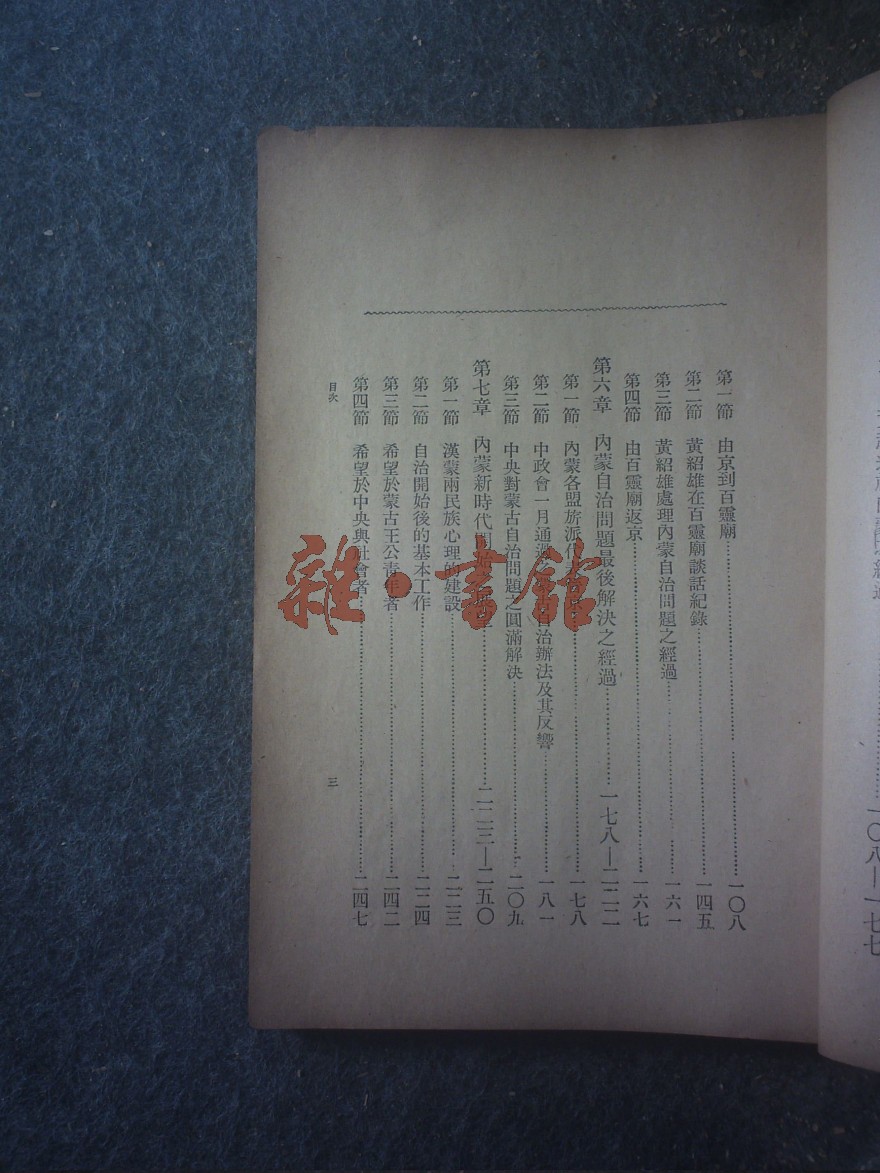 第一節 由京到百靈廟……一〇八
第二節 黃紹雄在百靈廟談話紀錄……一四五
第三節 黃紹雄處理內蒙自治問題之經過……一六一
第四節 由百靈廟返京……一六七
第六章 內蒙自治問題最後解決之經過……一七八—二二二
第一節 內蒙各盟旅派代……一七八
第二節 中政會一月通過 自治辦法及其反響……一八一
第三節 中央對蒙古自治問題之圓滿解決……二〇九
第七章 內蒙新時代開始……二二三—二五〇
第一節 漢蒙兩民族心理的建設……二二三
第二節 自治開始後的基本工作……二二四
第三節 希望於蒙古王公青年者……二四二
第四節 希望於中央與社會者……二四七
目次
三
一〇八—一七七
雜·書館